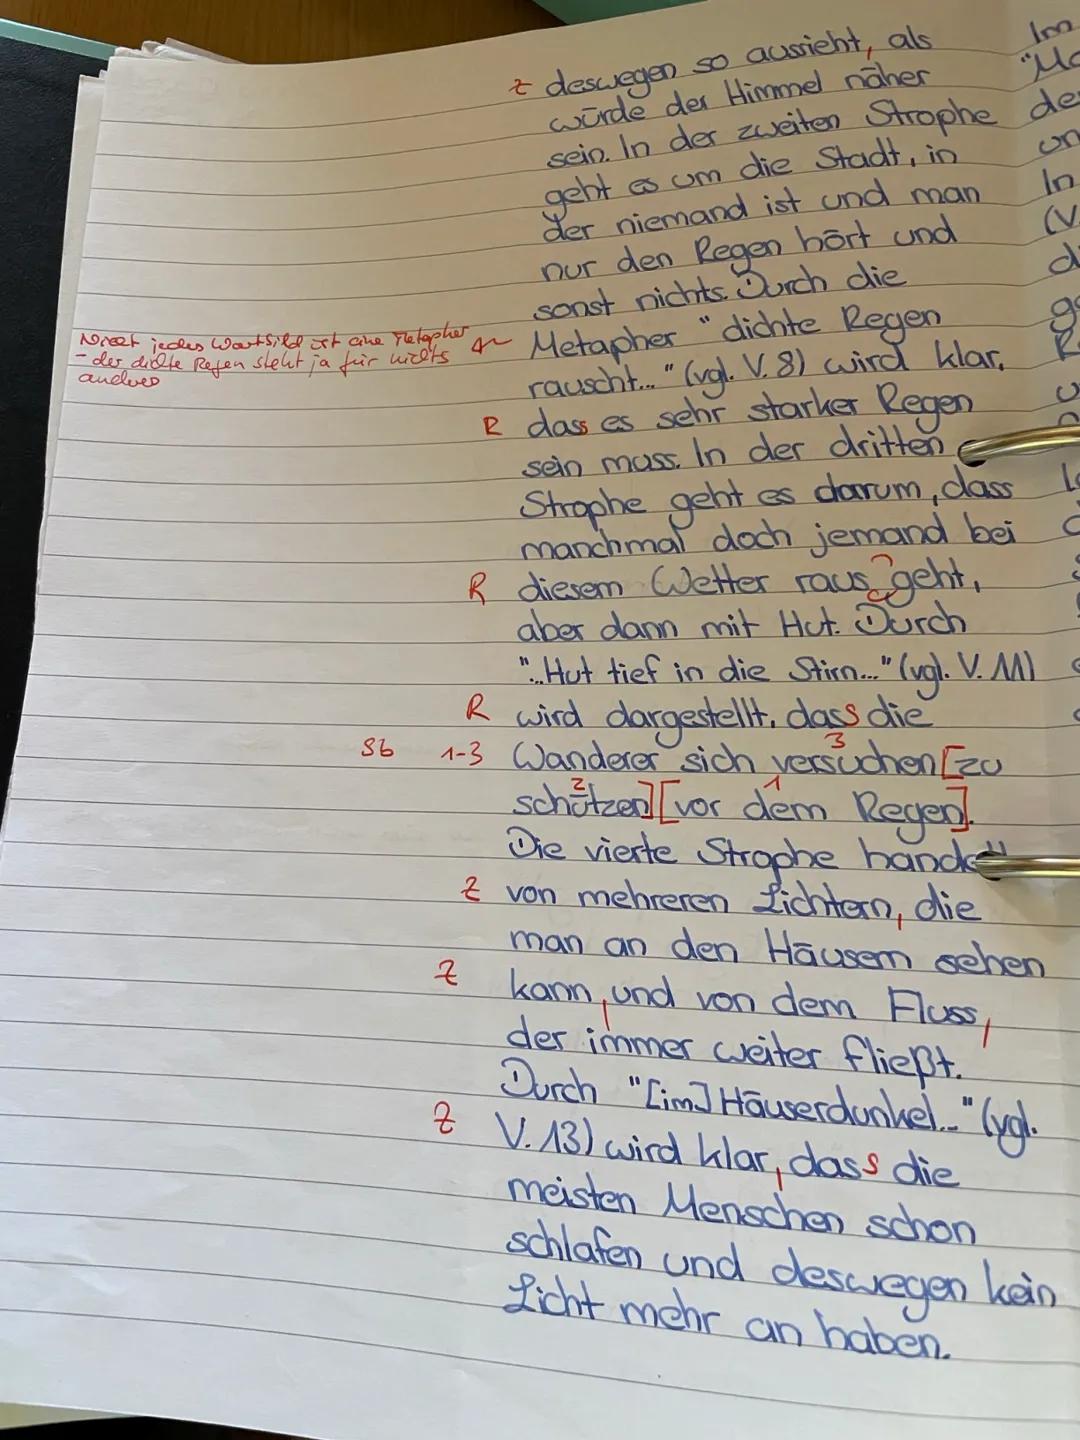 z deswegen so aussieht, als
würde der Himmel näher
sein. In der zweiten Strophe
geht es um die Stadt, in
der niemand ist und man
nur den Regen hört und
sonst nichts. Durch die
Nicht jedes Wortbild ist eine Metapher
– der dichte Regen steht ja für nichts
anderes
Metapher "dichte Regen
rauscht..." (vgl. V. 8) wird klar,
R dass es sehr starker Regen
sein muss. In der dritten
Strophe geht es darum, dass
manchmal doch jemand bei
R diesem Wetter raus geht,
aber dann mit Hut. Durch
"...Hut tief in die Stirn..." (vgl. V. 11)
R wird dargestellt, dass die
Sb 1-3 Wanderer sich versuchen [zu
3
schützen] [vor dem Regen].
2 1
Die vierte Strophe handelt
Z von mehreren Lichtern, die
man an den Häusern sehen
Z kann, und von dem Fluss,
der immer weiter fließt.
Durch "[im] Häuserdunkel..." (vgl.
Z V. 13) wird klar, dass die
meisten Menschen schon
schlafen und deswegen kein
Licht mehr an haben.
Im
"Mo
de
un
In
(V.
di